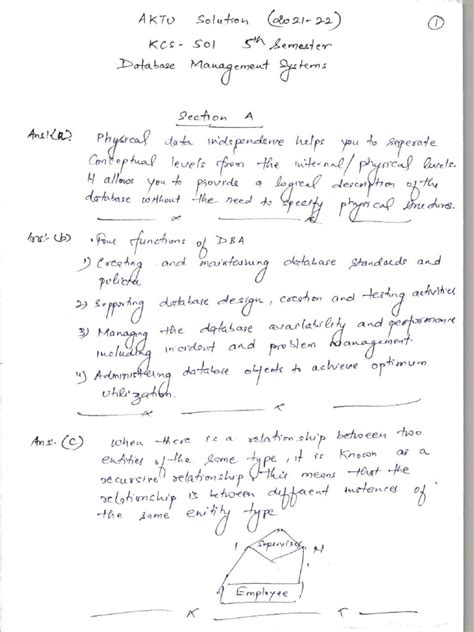 AKTU Solution (2021-22)
①
KCS-501 5th Semester
Database Management Systems
Section A
Ans:(a) Physical data independence helps you to seperate
Conceptual levels from the internal/physical levels.
It allows you to provide a logical description of the
database without the need to specify physical structures.
Ans:- (b) • Four functions of DBA
1) Creating and maintaining database standards and
policies
2) Supporting database design, creation and testing activities
3) Managing the database availability and performance
including incident and problem management.
4) Administering database objects to achieve optimum
Utilization.
Ans. (c) When there is a relationship between two
entities of the same type, it is known as a
recursive relationship, this means that the
relationship is between different instances of
the same enitity type
1 Supervises N
Employee